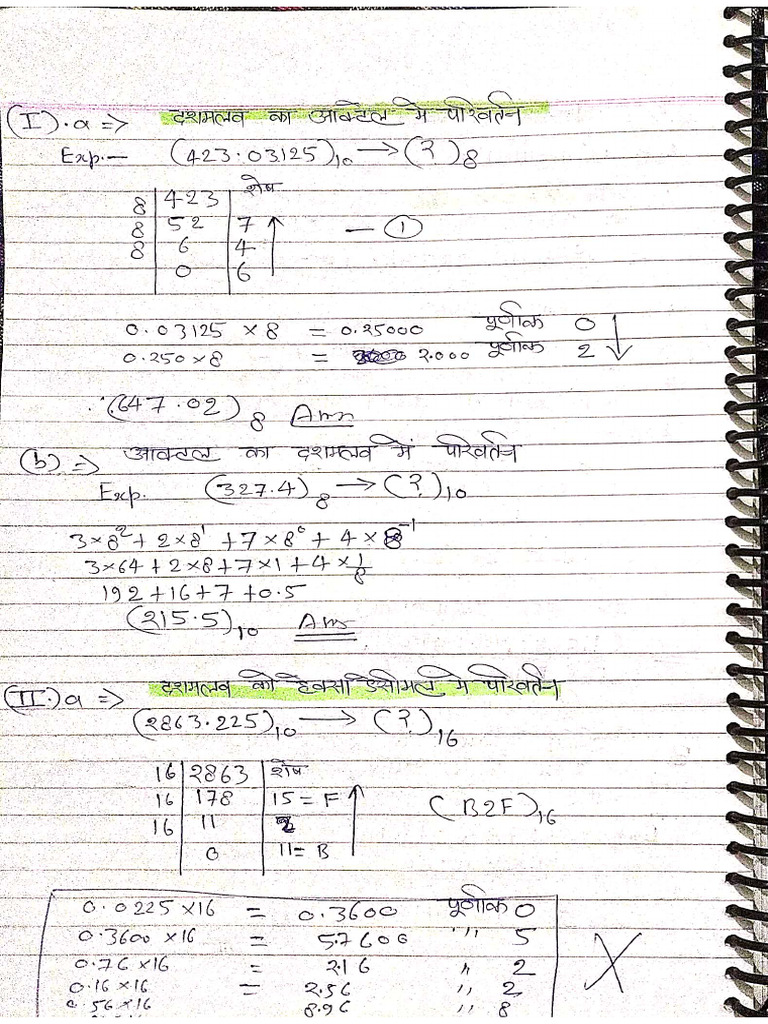 (I).a => दशमलव का आक्टल मे परिवर्तन
Exp.— (423.03125)10 → (?)8
8 | 423 | शेष
8 | 52 | 7 — ①
8 | 6 | 4
0 | 6
0.03125 × 8 = 0.25000 पूर्णांक 0
0.250 × 8 = 2.000 पूर्णांक 2
(647.02)8 Ans
(b) => आक्टल का दशमलव में परिवर्तन
Exp. (327.4)8 → (?)10
3×8² + 2×8¹ + 7×8⁰ + 4×8⁻¹
3×64 + 2×8 + 7×1 + 4×1/8
192 + 16 + 7 + 0.5
(215.5)10 Ans
(II.)a => दशमलव को हेक्सा डेसीमल मे परिवर्तन
(2863.225)10 → (?)16
16 | 2863 | शेष
16 | 178 | 15 = F (B2F)16
16 | 11 | 2
0 | 11 = B
0.0225 ×16 = 0.3600 पूर्णांक 0
0.3600 ×16 = 5.7600 '' 5
0.76 ×16 = 2.16 '' 2
0.16 ×16 = 2.56 '' 2
0.56 ×16 8.96 '' 8